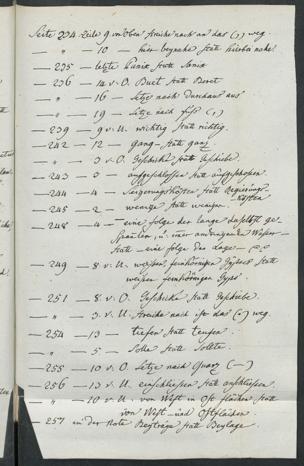 Seite 234 Zeile 9 von Oben streiche nach an das (,) weg.
— " — 10 — hier beynahe statt hierbei nahe.
— 235 — letzte statt
— 236 — 14 v. O. Buet statt Beret
— " — 16 — Setze nach durchaus aus
— " — 19 — Setze nach (,)
— 239 — 9 v. U. wichtig statt richtig.
— 242 — 12 — gang statt ganz.
— " — 3 v. O. Geschicke statt Geschiebe.
— 243 — 3 — aufgeschlossen statt
— 244 — 4 — statt Regierungs-
kosten
— 245 — 2 — wenige statt weniger
— 248 — 4 — eine folge der lange daselbst ge-
u. Wasser —
statt — eine folge der Lage —
— 249 — 8. v. U. weißen, feinkörnigen Gypses statt
weißer feinkörniger Gyps.
— 251 — 8 v. O. Geschicke statt Geschiebe.
— " — 3 v. U. streiche nach ist das (,) weg.
— 254 — 13 — tiefen statt
— " — 5 — Solle statt Sollte.
— 255 — 10 v. O. Setze nach Quarz (—)
— 256 — 13 v. U. einschliessen statt anschliessen.
— " — 10 v. U. von West in Ost flächen statt
von West- und Ostflächen
— 257 in der Note Beyträge statt Beylage.